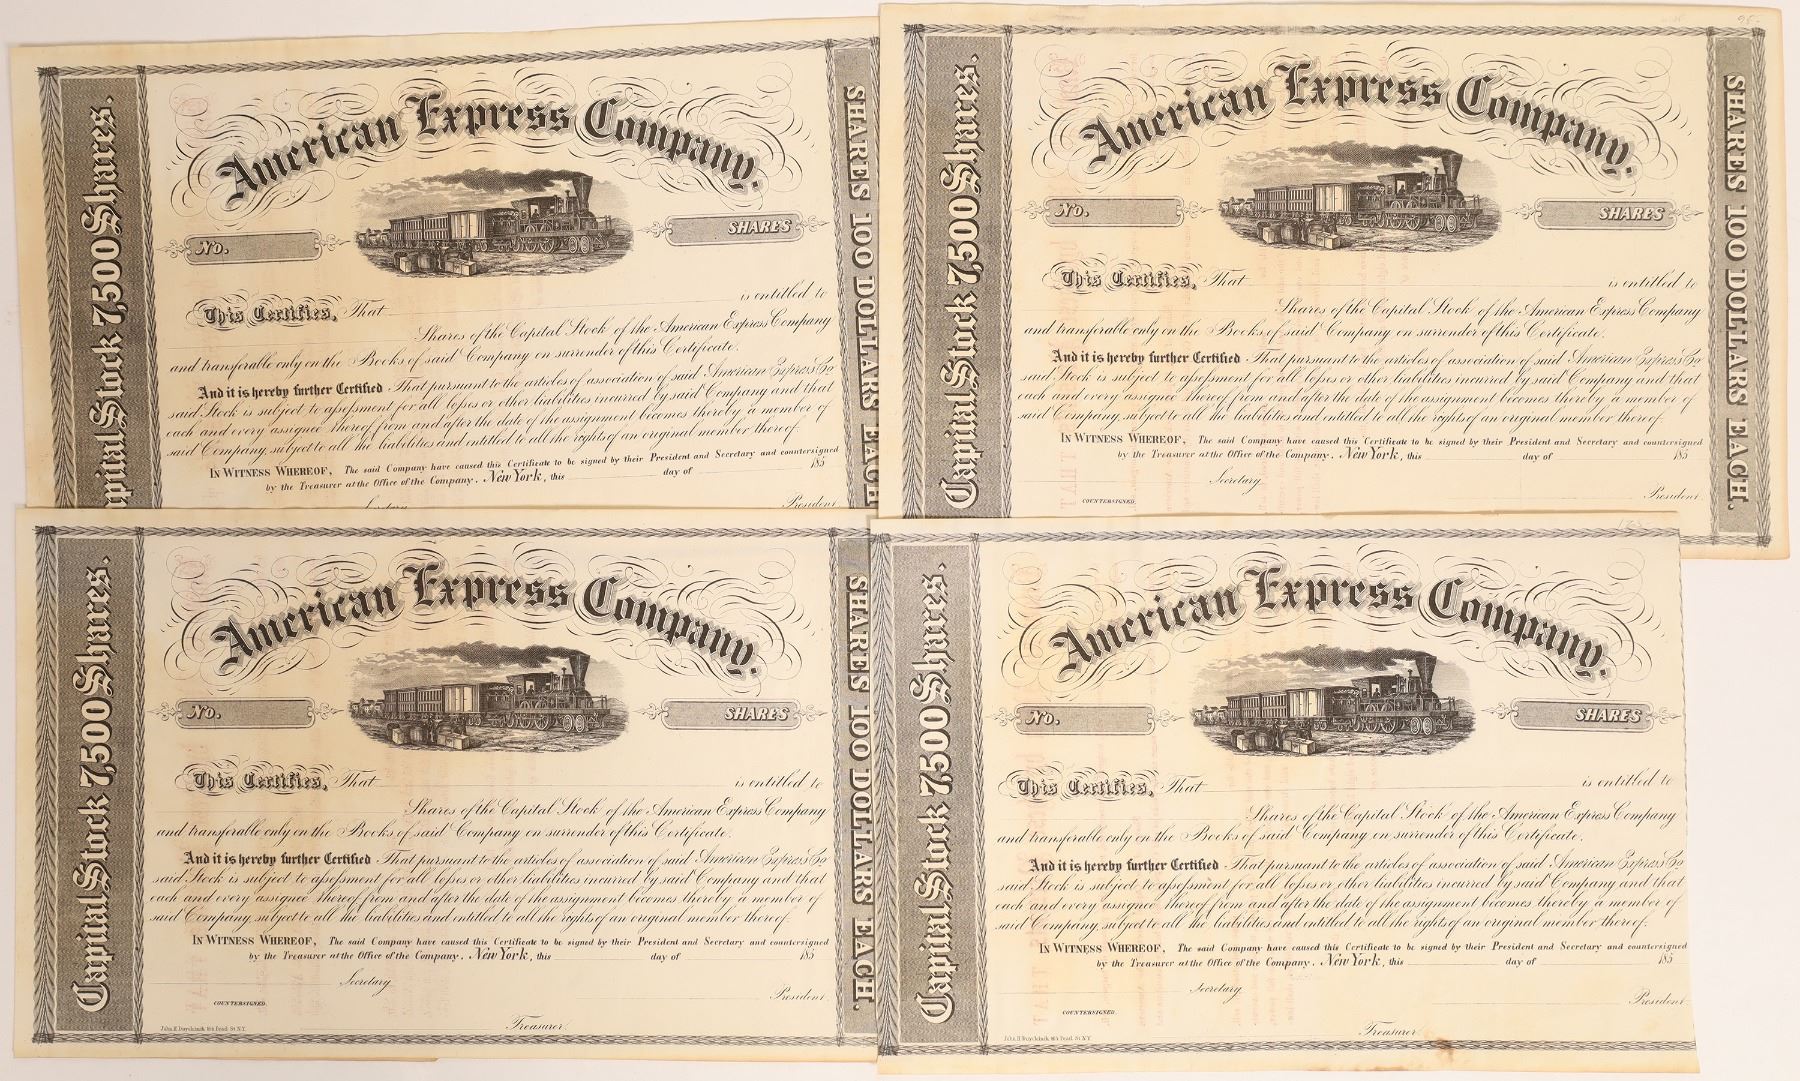 American Express Company.
Capital Stock 7,500 Shares.
SHARES 100 DOLLARS EACH.
No.
SHARES
This Certifies, That
is entitled to
Shares of the Capital Stock of the American Express Company
and transferable only on the Books of said Company on surrender of this Certificate.
And it is hereby further Certified That pursuant to the articles of association of said American Express Co
said Stock is subject to assessment for all losses or other liabilities incurred by said Company and that
each and every assignee thereof from and after the date of the assignment becomes thereby a member of
said Company, subject to all the liabilities and entitled to all the rights of an original member thereof.
IN WITNESS WHEREOF, The said Company have caused this Certificate to be signed by their President and Secretary and countersigned
by the Treasurer at the Office of the Company. New York, this day of 185
Secretary
President
American Express Company.
Capital Stock 7,500 Shares.
SHARES 100 DOLLARS EACH.
No.
SHARES
This Certifies, That
is entitled to
Shares of the Capital Stock of the American Express Company
and transferable only on the Books of said Company on surrender of this Certificate.
And it is hereby further Certified That pursuant to the articles of association of said American Express Co
said Stock is subject to assessment for all losses or other liabilities incurred by said Company and that
each and every assignee thereof from and after the date of the assignment becomes thereby a member of
said Company, subject to all the liabilities and entitled to all the rights of an original member thereof.
IN WITNESS WHEREOF, The said Company have caused this Certificate to be signed by their President and Secretary and countersigned
by the Treasurer at the Office of the Company. New York, this day of 185
Secretary
President
COUNTERSIGNED.
American Express Company.
Capital Stock 7,500 Shares.
SHARES 100 DOLLARS EACH.
No.
SHARES
This Certifies, That
is entitled to
Shares of the Capital Stock of the American Express Company
and transferable only on the Books of said Company on surrender of this Certificate.
And it is hereby further Certified That pursuant to the articles of association of said American Express Co
said Stock is subject to assessment for all losses or other liabilities incurred by said Company and that
each and every assignee thereof from and after the date of the assignment becomes thereby a member of
said Company, subject to all the liabilities and entitled to all the rights of an original member thereof.
IN WITNESS WHEREOF, The said Company have caused this Certificate to be signed by their President and Secretary and countersigned
by the Treasurer at the Office of the Company. New York, this day of 185
Secretary
President
COUNTERSIGNED.
Treasurer.
John E. Duyckinck, Pearl St. N.Y.
American Express Company.
Capital Stock 7,500 Shares.
No.
SHARES
This Certifies, That
is entitled to
Shares of the Capital Stock of the American Express Company
and transferable only on the Books of said Company on surrender of this Certificate.
And it is hereby further Certified That pursuant to the articles of association of said American Express Co
said Stock is subject to assessment for all losses or other liabilities incurred by said Company and that
each and every assignee thereof from and after the date of the assignment becomes thereby a member of
said Company, subject to all the liabilities and entitled to all the rights of an original member thereof.
IN WITNESS WHEREOF, The said Company have caused this Certificate to be signed by their President and Secretary and countersigned
by the Treasurer at the Office of the Company. New York, this day of 185
Secretary
President
COUNTERSIGNED.
Treasurer.
Duyckinck, Pearl St. N.Y.